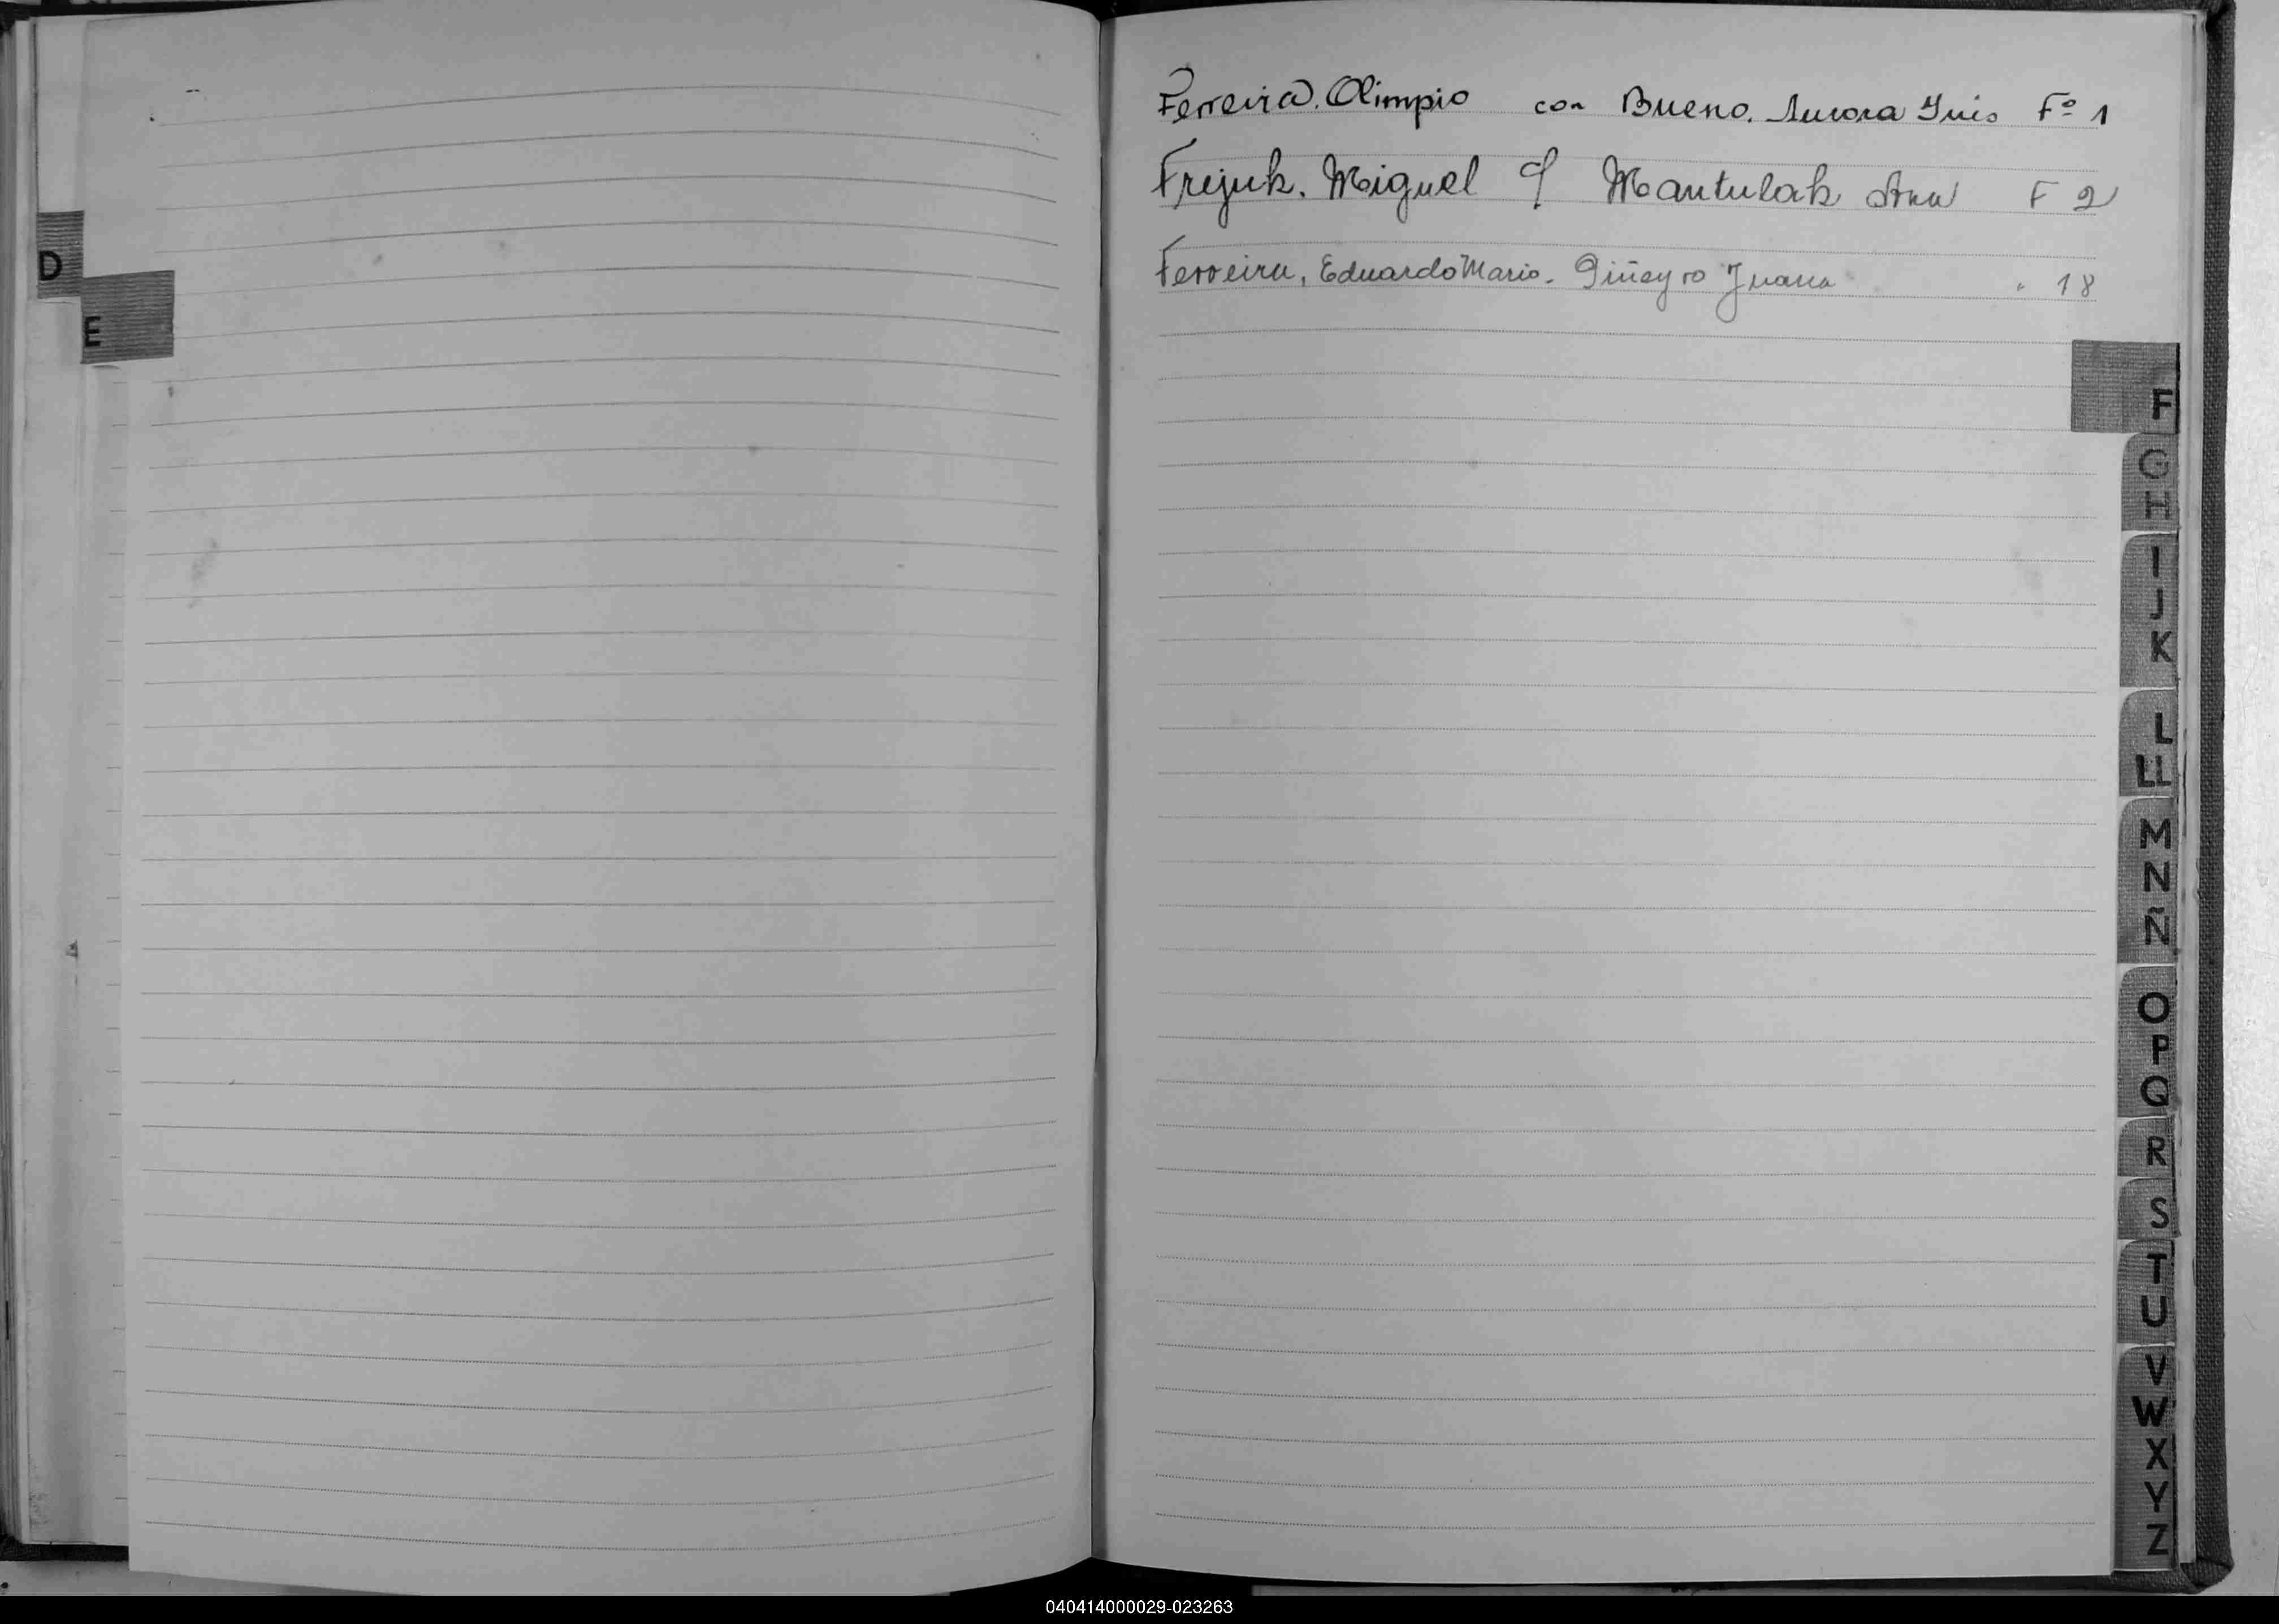 Ferreira. Olimpio con Bueno. Aurora Inés Fº 1
Frejuk. Miguel c/ Mantulak Ana F 2
Ferreira, Eduardo Mario. Giñeyro Juana " 18
D
E
F
G
H
I
J
K
L
LL
M
N
Ñ
O
P
Q
R
S
T
U
V
W
X
Y
Z
040414000029-023263